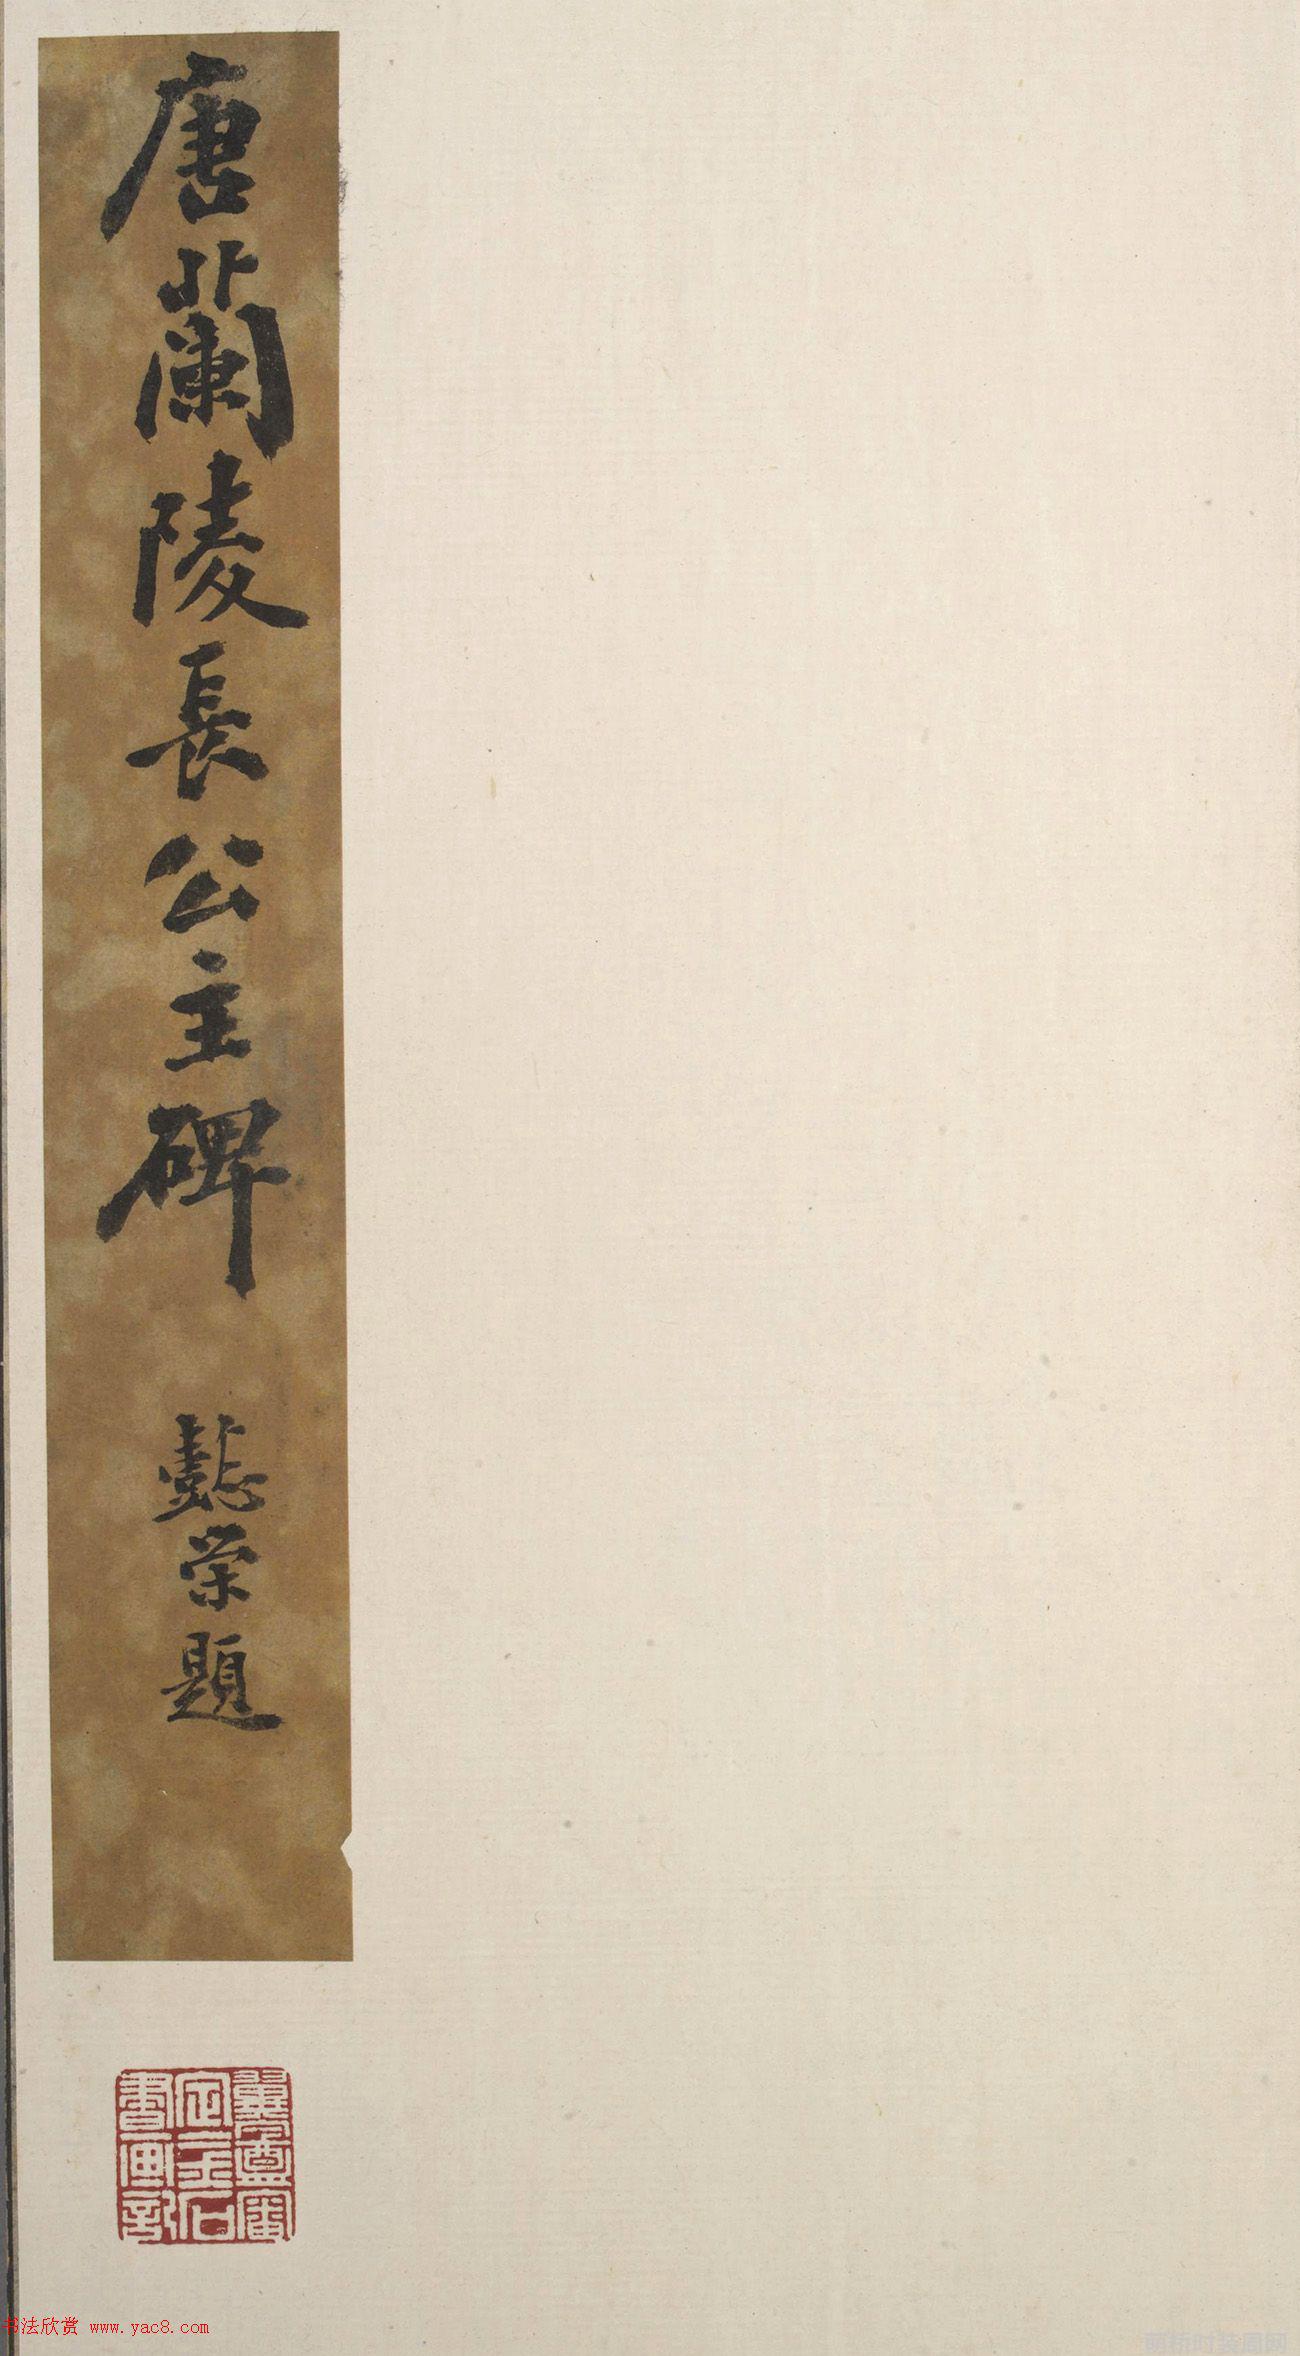 唐蘭陵長公主碑
懿榮題
书法欣赏 www.yac8.com